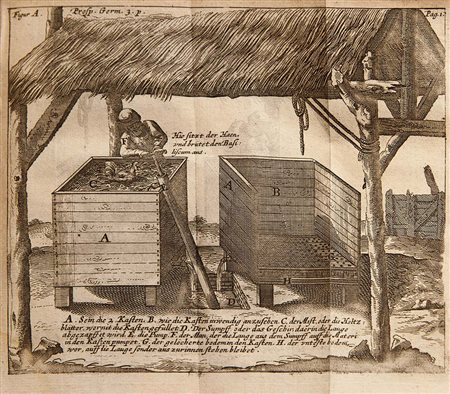 Figur A. Prosp. Germ. 3. p. Pag. 1
Hie sitzt der Haen
und brütet den Basi-
liscum aus.
F
C
A
A
B
E
G
H
D
A. Sein die 2 Kasten. B. wie die Kasten inwendig anzusehen C. der Mist. oder die Holtz
blätter, wormit die Kasten gefüllet. D. Der Sumpff oder das Geschir, daerin die Lauge
abgezapffet wird. E. die Pomp. F. der Man, der die Lauge aus dem Sumpff auff die Materi
in den Kasten pompet. G. der gelöcherte bodem in den Kasten. H. der unterste bodem,
wor, auff die Lauge sonder aus zurinnen stehen bleibet.